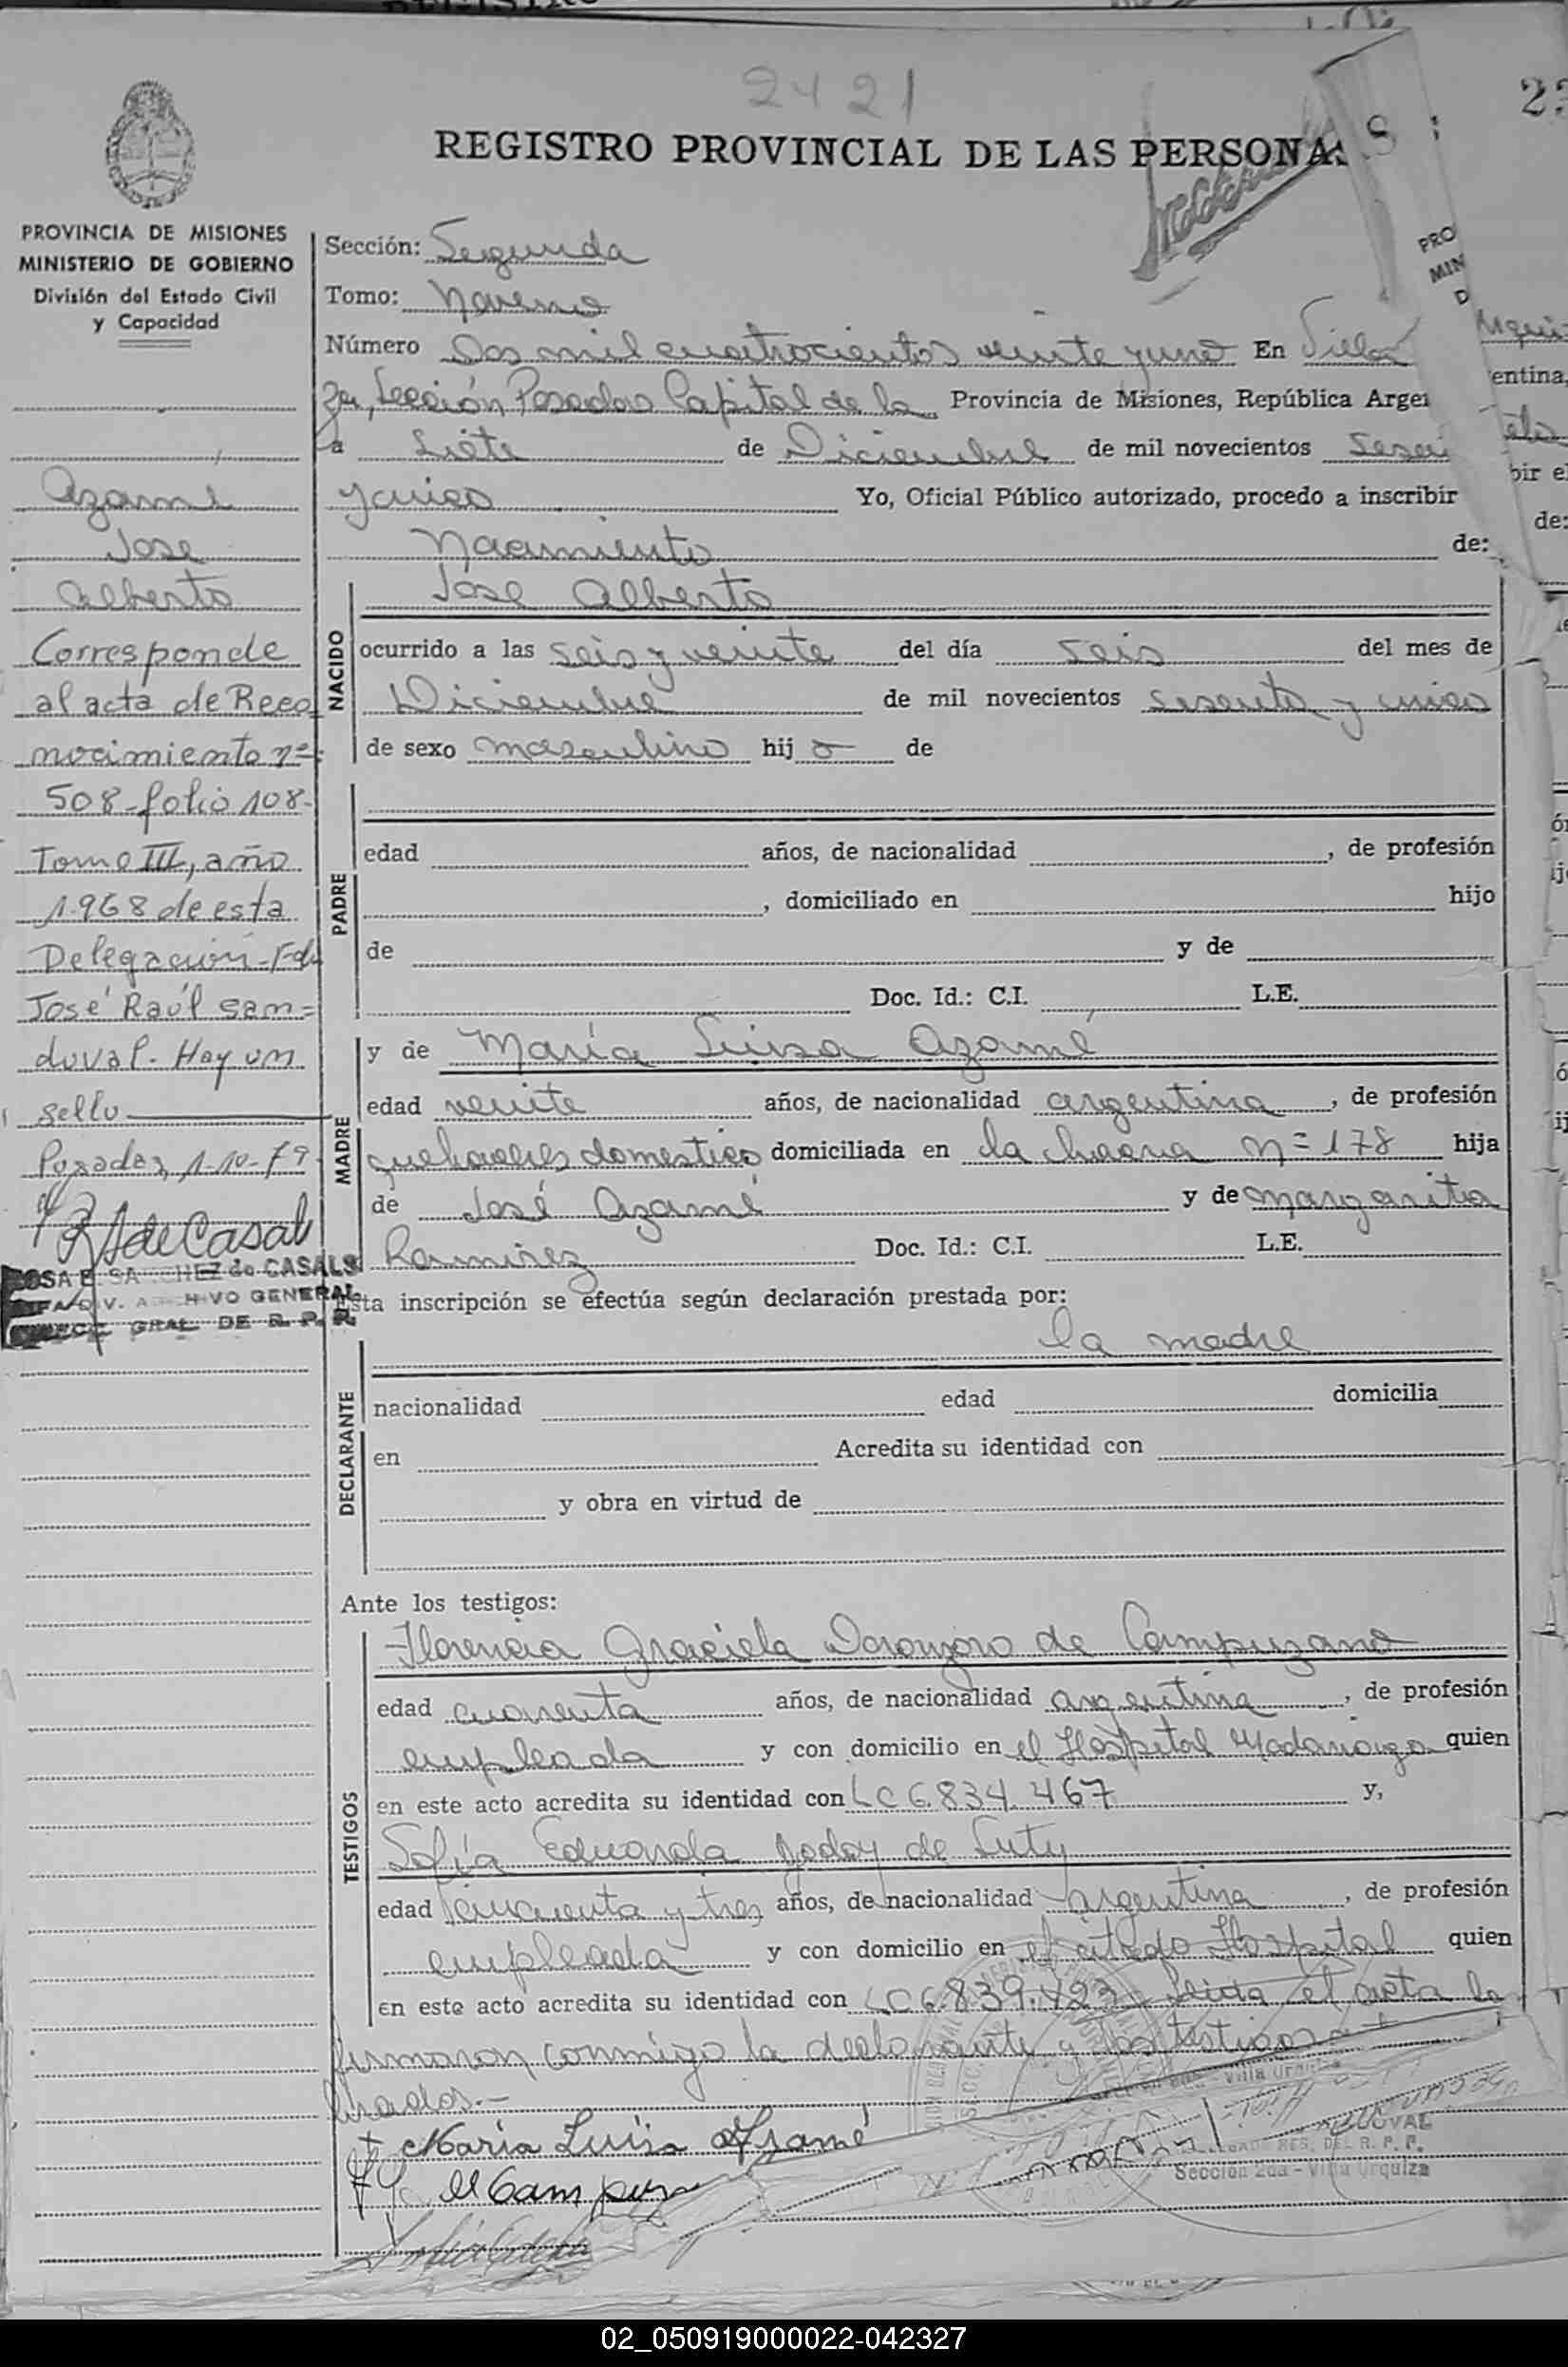 2421
REGISTRO PROVINCIAL DE LAS PERSONAS
PROVINCIA DE MISIONES
MINISTERIO DE GOBIERNO
División del Estado Civil
y Capacidad
Azame
Jose
Alberto
Corresponde
al acta de Reco
nocimiento nº
508-folio 108-
Tomo III, año
1.968 de esta
Delegación-Fdo
José Raúl San=
doval. Hay un
sello
Posadas, 1-10-79
R S de Casals
ROSA E. SANCHEZ de CASALS
JEFA DIV. ARCHIVO GENERAL
DIRECC. GRAL. DE R. P. P.
Sección: Segunda
Tomo: Noveno
Número Dos mil cuatrocientos veinte y uno En Villa
2da, Sección Posadas Capital de la Provincia de Misiones, República Argen
a Siete de Diciembre de mil novecientos sesen
y cinco Yo, Oficial Público autorizado, procedo a inscribir
Nacimiento de:
NACIDO
Jose Alberto
ocurrido a las seis y veinte del día seis del mes de
Diciembre de mil novecientos sesenta y cinco
de sexo masculino hijo de
PADRE
edad años, de nacionalidad , de profesión
, domiciliado en hijo
de y de
Doc. Id.: C.I. L.E.
MADRE
y de María Luisa Azamé
edad veinte años, de nacionalidad argentina, de profesión
quehaceres domestico domiciliada en la chacra nº 178 hija
de José Azamé y de Margarita
Ramirez Doc. Id.: C.I. L.E.
Esta inscripción se efectúa según declaración prestada por:
la madre
DECLARANTE
nacionalidad edad domicilia
en Acredita su identidad con
y obra en virtud de
Ante los testigos:
TESTIGOS
Florencia Graciela de Campuzano
edad cuarenta años, de nacionalidad argentina, de profesión
empleada y con domicilio en el Hospital Madariaga quien
en este acto acredita su identidad con LC 6.834.467 y,
Sofía Eduarda Godoy de Luty
edad cincuenta y tres años, de nacionalidad argentina, de profesión
empleada y con domicilio en el citado Hospital quien
en este acto acredita su identidad con LC 6.839.423 Leida el acta la
firmaron conmigo la declarante y los testigos
María Luisa Azamé
Sección 2da - Villa Urquiza
02_050919000022-042327